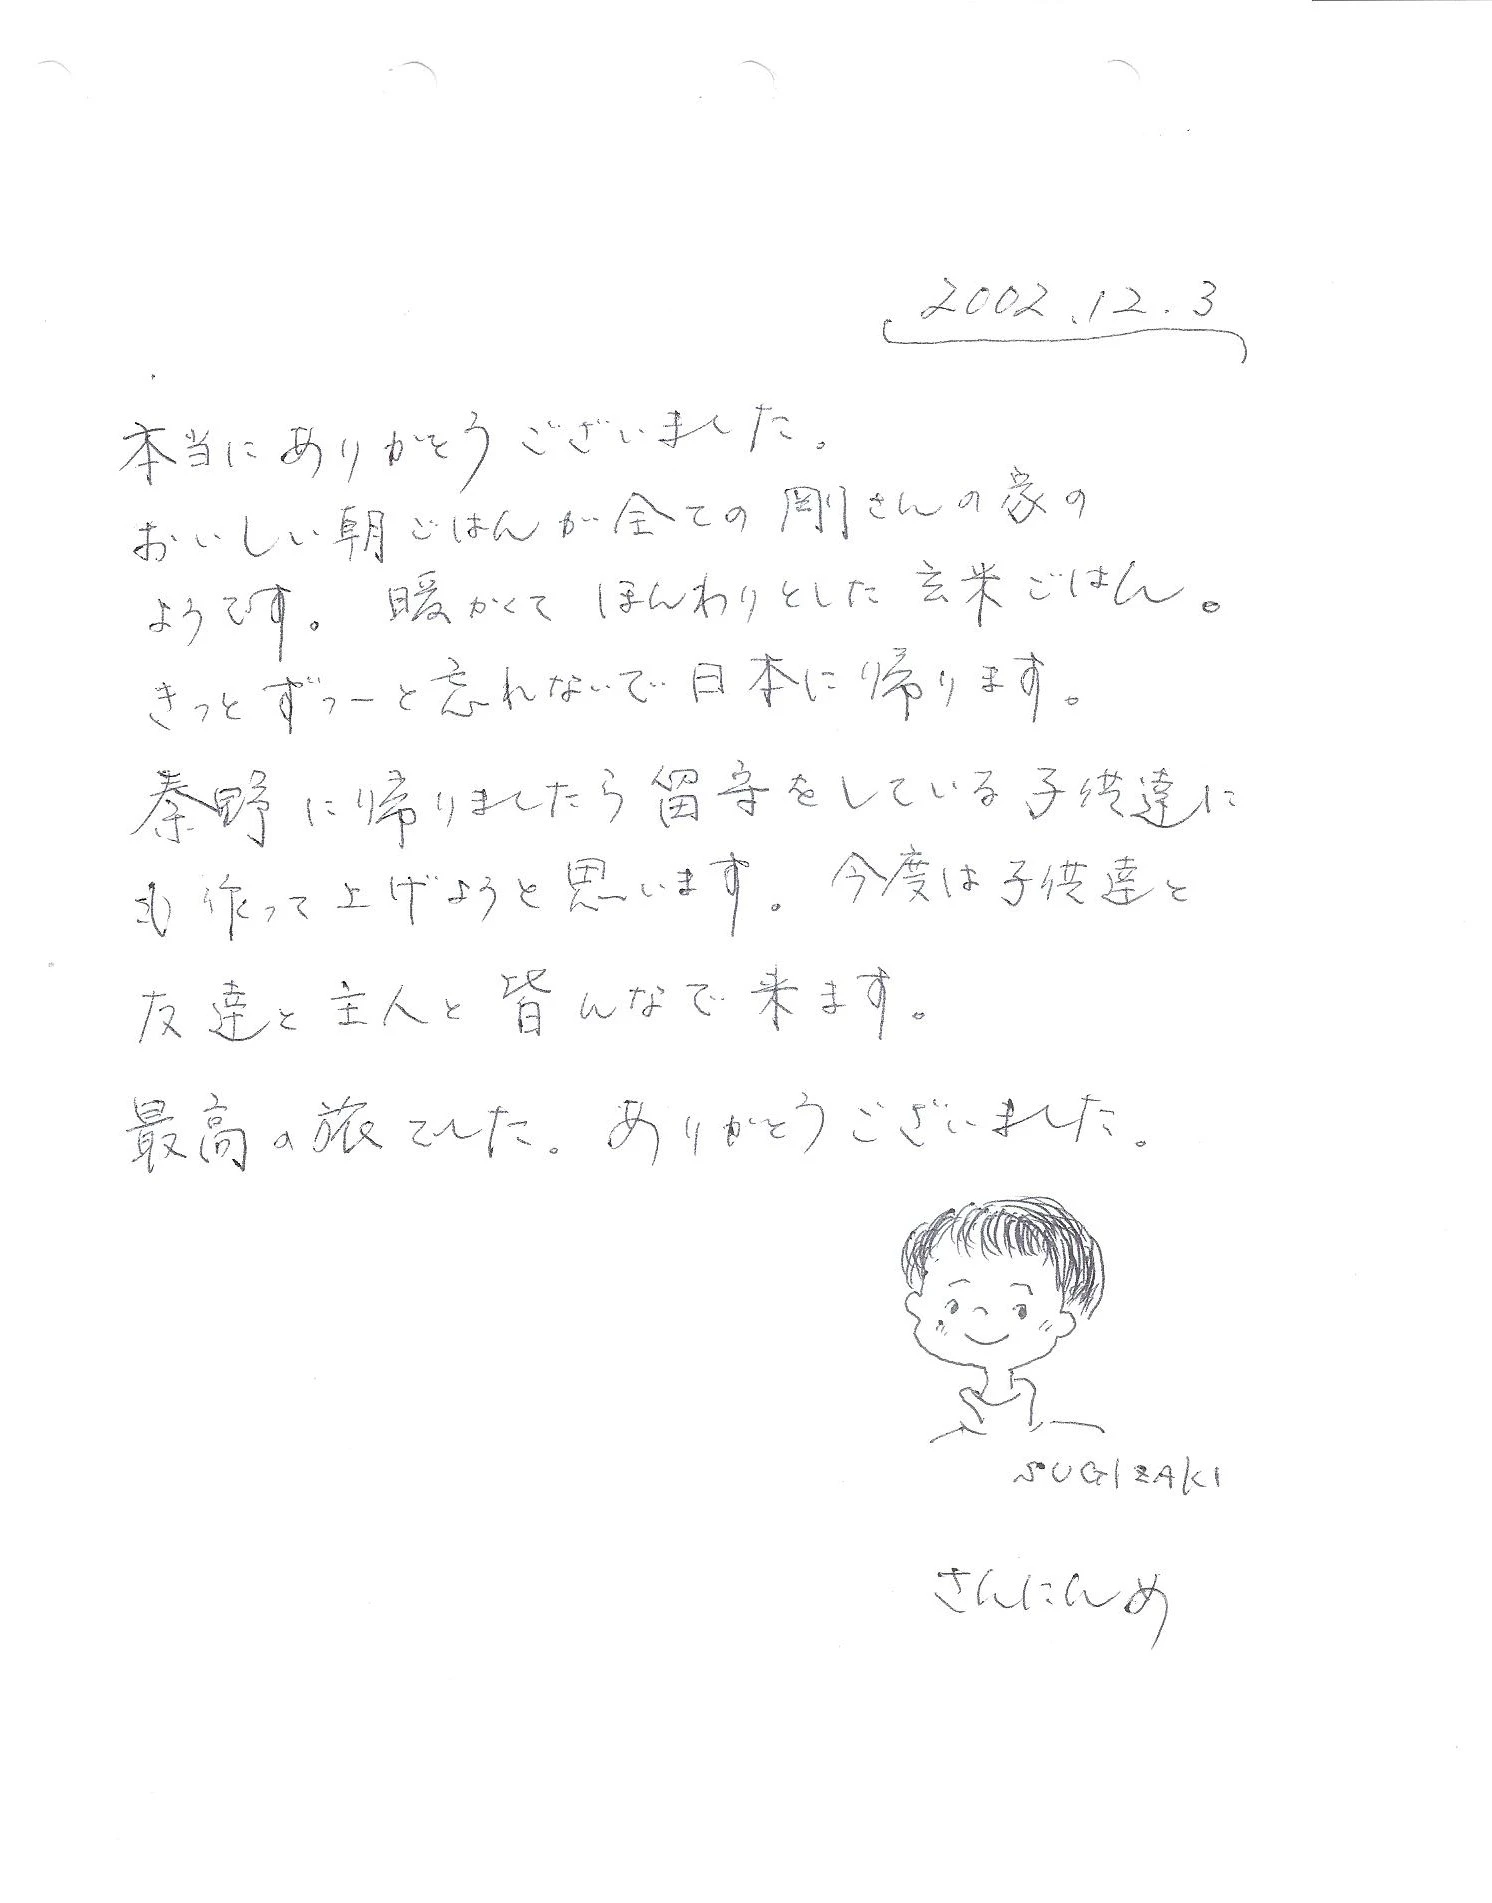 2002.12.3
本当にありがとうございました。
おいしい朝ごはんが全ての剛さんの家の
ようです。 暖かくて ほんわりとした玄米ごはん。
きっとずっーと忘れないで日本に帰ります。
秦野に帰りましたら留守をしている子供達に
も作って上げようと思います。 今度は子供達と
友達と主人と皆んなで来ます。
最高の旅でした。ありがとうございました。
SUGIZAKI
さんにんめ